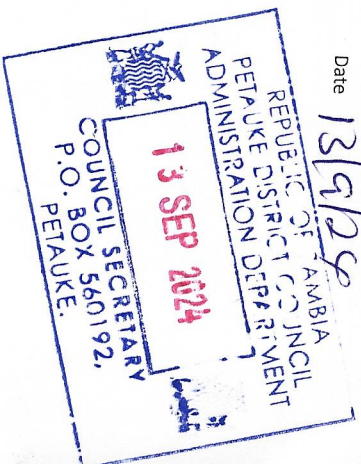 Date 13/9/24
REPUBLIC OF ZAMBIA
PETAUKE DISTRICT COUNCIL
ADMINISTRATION DEPARTMENT
13 SEP 2024
COUNCIL SECRETARY
P.O. BOX 560192,
PETAUKE.